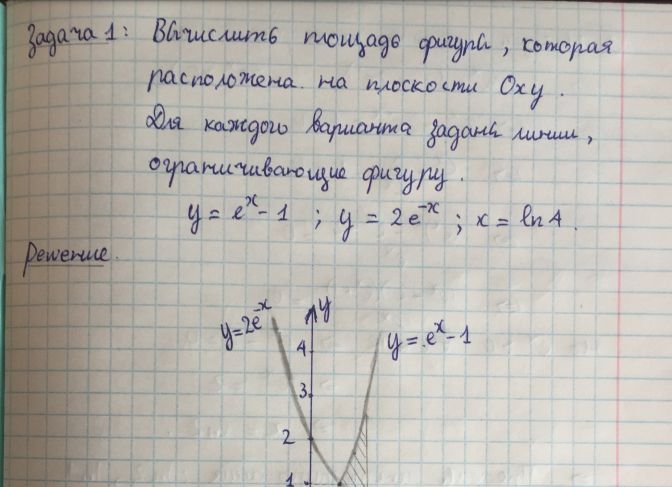 Задача 1: Вычислить площадь фигуры, которая
расположена на плоскости Оху.
Для каждого варианта заданы линии,
ограничивающие фигуру.
y = eˣ - 1 ; y = 2e⁻ˣ ; x = ln 4.
Решение.
y
y=2e⁻ˣ
y = eˣ - 1
4
3
2
1